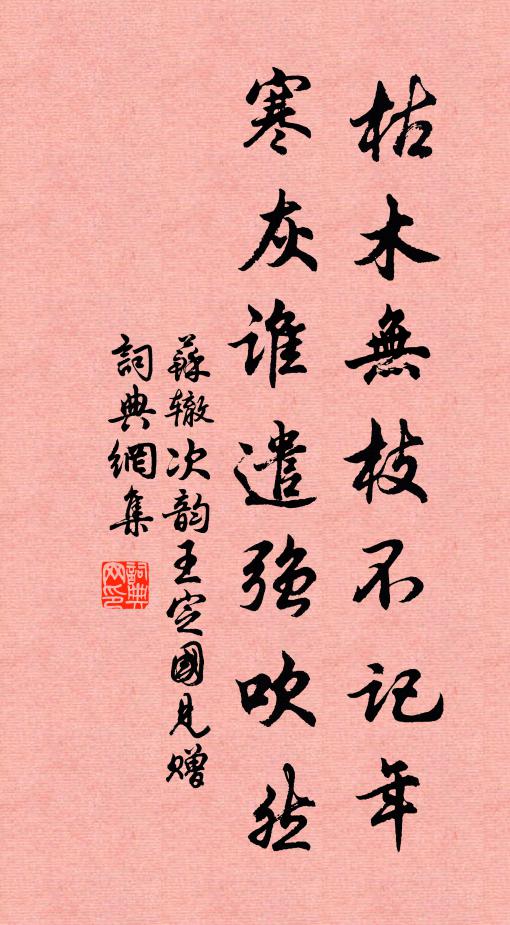 枯木無枝不記年
寒灰谁遣強吹然
蘇辙次韵王定國見赠
詞典網集
詞典网印